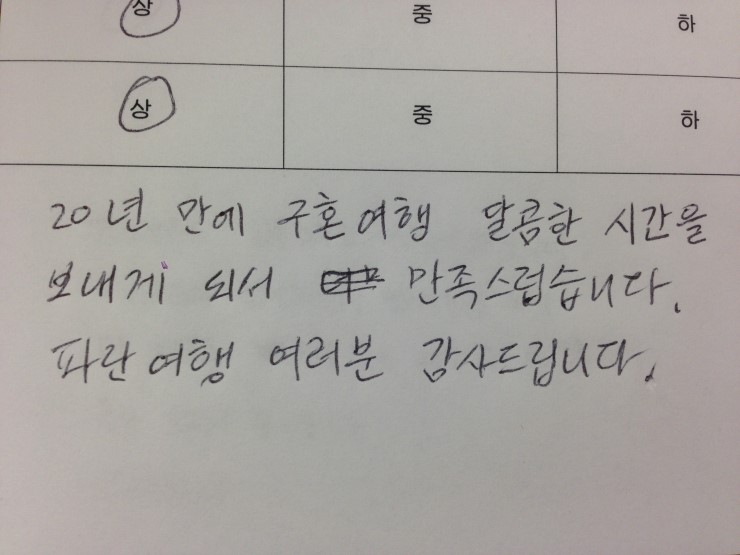 상 중 하
상 중 하
20년 만에 구혼여행 달콤한 시간을
보내게 되서 만족스럽습니다.
파란여행 여러분 감사드립니다.